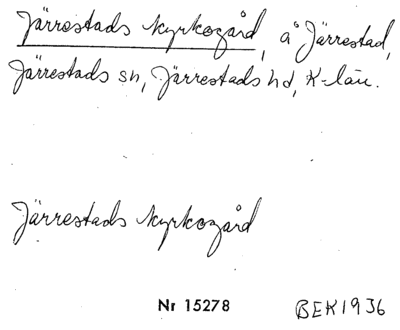 Järrestads kyrkogård, å Järrestad,
Järrestads sn, Järrestads hd, K-län.
Järrestads kyrkogård
Nr 15278 BEK1936